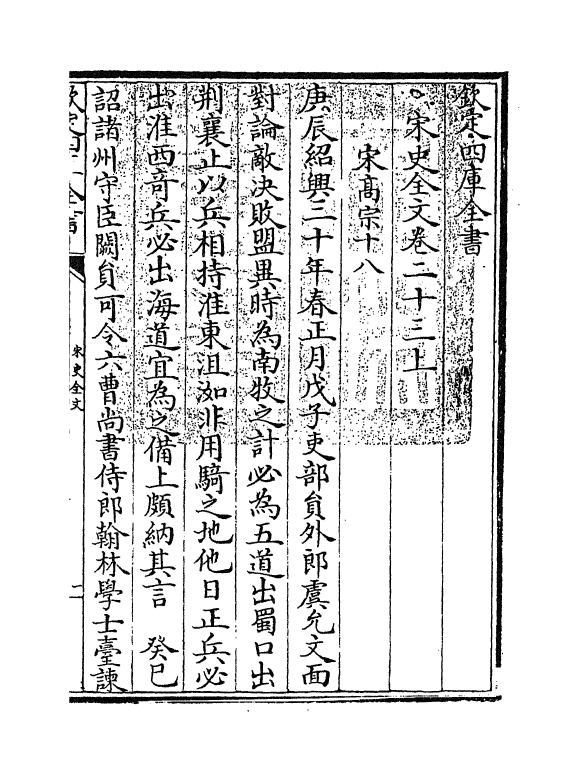 欽定四庫全書
宋史全文卷二十三上
宋髙宗十八
庚辰紹興三十年春正月戊子吏部貟外郎虞允文面
對論敵決敗盟異時為南牧之計必為五道出蜀口出
荆襄止以兵相持淮東沮洳非用騎之地他日正兵必
出淮西竒兵必出海道宜為之備上頗納其言 癸巳
詔諸州守臣闕貟可令六曹尚書侍郎翰林學士臺諫
宋史全文